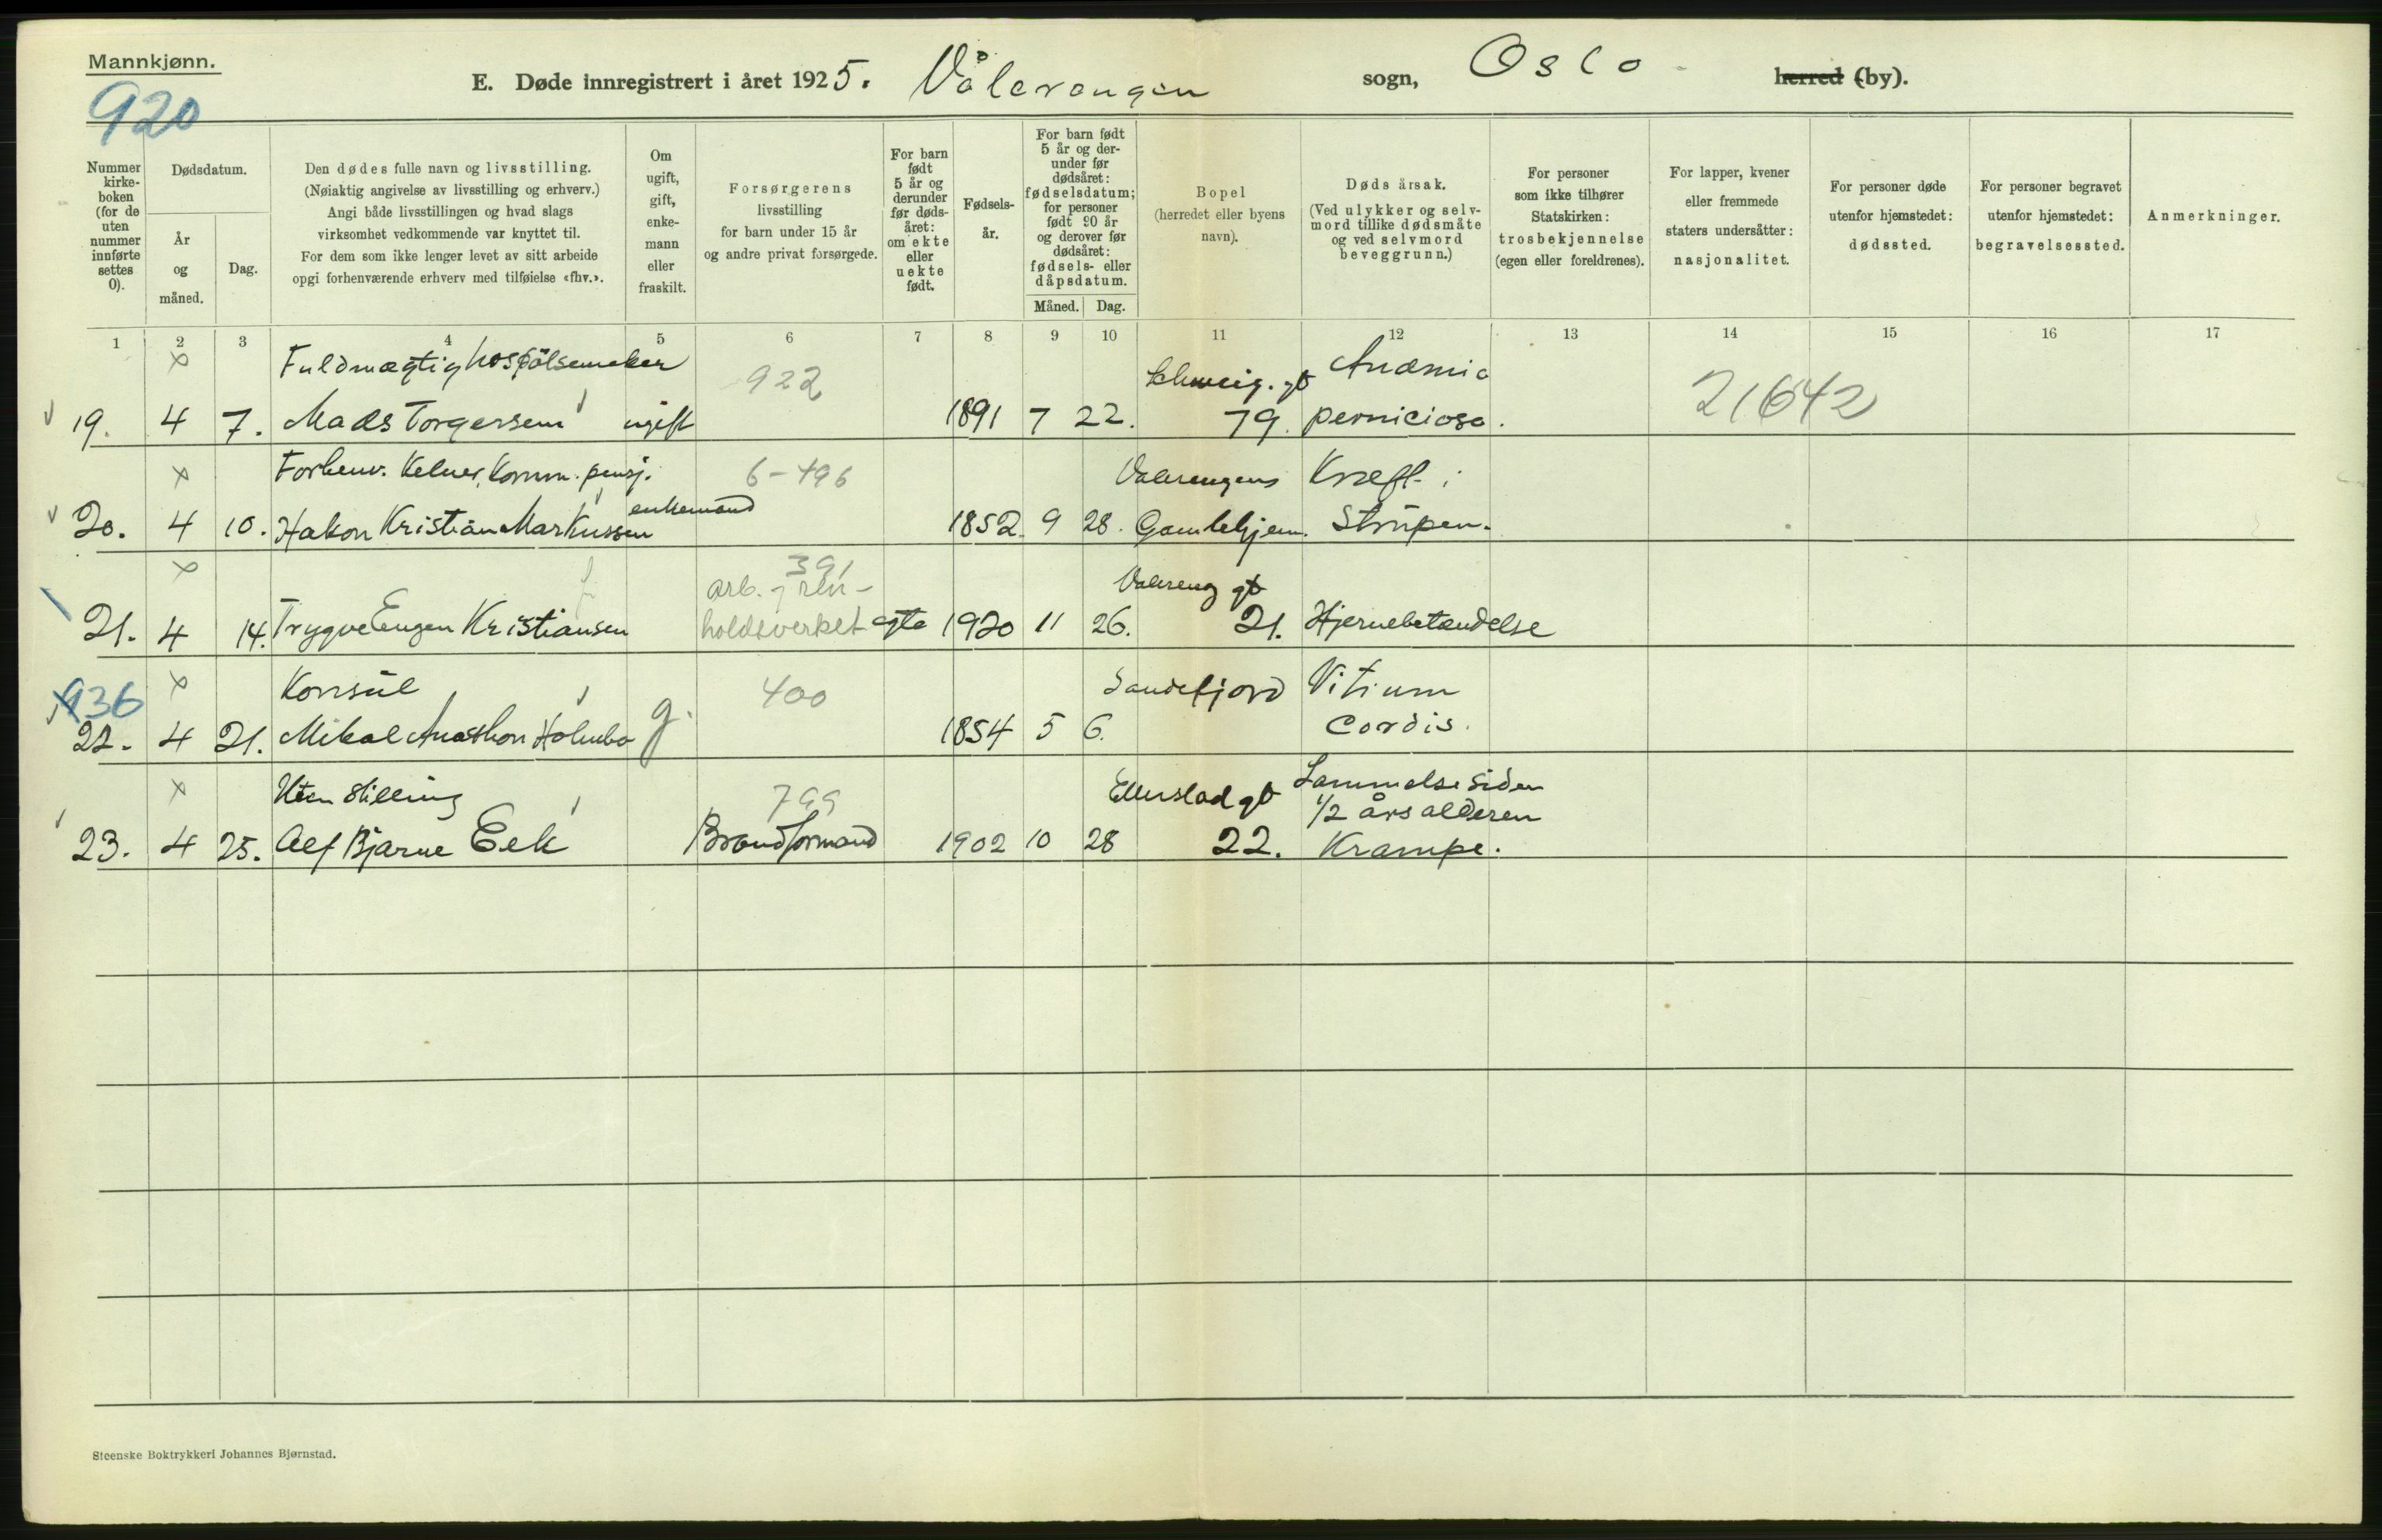 Mannkjønn.
920
E. Døde innregistrert i året 1925. Vålerengen sogn, Oslo herred (by).
Nummer kirke-boken (for de uten nummer innførte settes 0).
Dødsdatum.
År og måned.
Dag.
Den dødes fulle navn og livsstilling.
(Nøiaktig angivelse av livsstilling og erhverv.)
Angi både livsstillingen og hvad slags
virksomhet vedkommende var knyttet til.
For dem som ikke lenger levet av sitt arbeide
opgi forhenværende erhverv med tilføielse «fhv.».
Om ugift, gift, enke-mann eller fraskilt.
Forsørgerens
livsstilling
for barn under 15 år
og andre privat forsørgede.
For barn født 5 år og derunder før døds-året: om ekte eller uekte født.
Fødsels-år.
For barn født 5 år og der-under før dødsåret: fødselsdatum; for personer født 90 år og derover før dødsåret: fødsels- eller dåpsdatum.
Måned. Dag.
Bopel
(herredet eller byens navn).
Døds årsak.
(Ved ulykker og selv-mord tillike dødsmåte og ved selvmord beveggrunn.)
For personer
som ikke tilhører
Statskirken:
trosbekjennelse
(egen eller foreldrenes).
For lapper, kvener
eller fremmede
staters undersåtter:
nasjonalitet.
For personer døde
utenfor hjemstedet:
dødssted.
For personer begravet
utenfor hjemstedet:
begravelsessted.
Anmerkninger.
1 2 3 4 5 6 7 8 9 10 11 12 13 14 15 16 17
x Fuldmægtig hos pølsemaker 922 Schweig. gt Anæmia 21642
19. 4 7. Mads Torgersen ugift 1891 7 22. 79. perniciosa.
x Forhenv. Kelner, Komm. pensj. 6-496 Valerengens Kræft i
20. 4 10. Hakon Kristian Markussen enkemand 1852. 9 28. Gamlehjem. Strupen.
x 391 arb. i ren- Valereng gt
21. 4 14. Trygve Eugen Kristiansen holdsverket egte 1920 11 26. 21. Hjernebetændelse
936 x Konsul 400 Sandefjord Vitium
22. 4 21. Mikal Anathon Holmbo g. 1854 5 6. Cordis.
x Uten stilling 799 Ellerslad gt Lammelse siden
1/2 års alderen
23. 4 25. Alf Bjarne Eek Brandformand 1902 10 28 22. Krampe.
Steenske Boktrykkeri Johannes Bjørnstad.